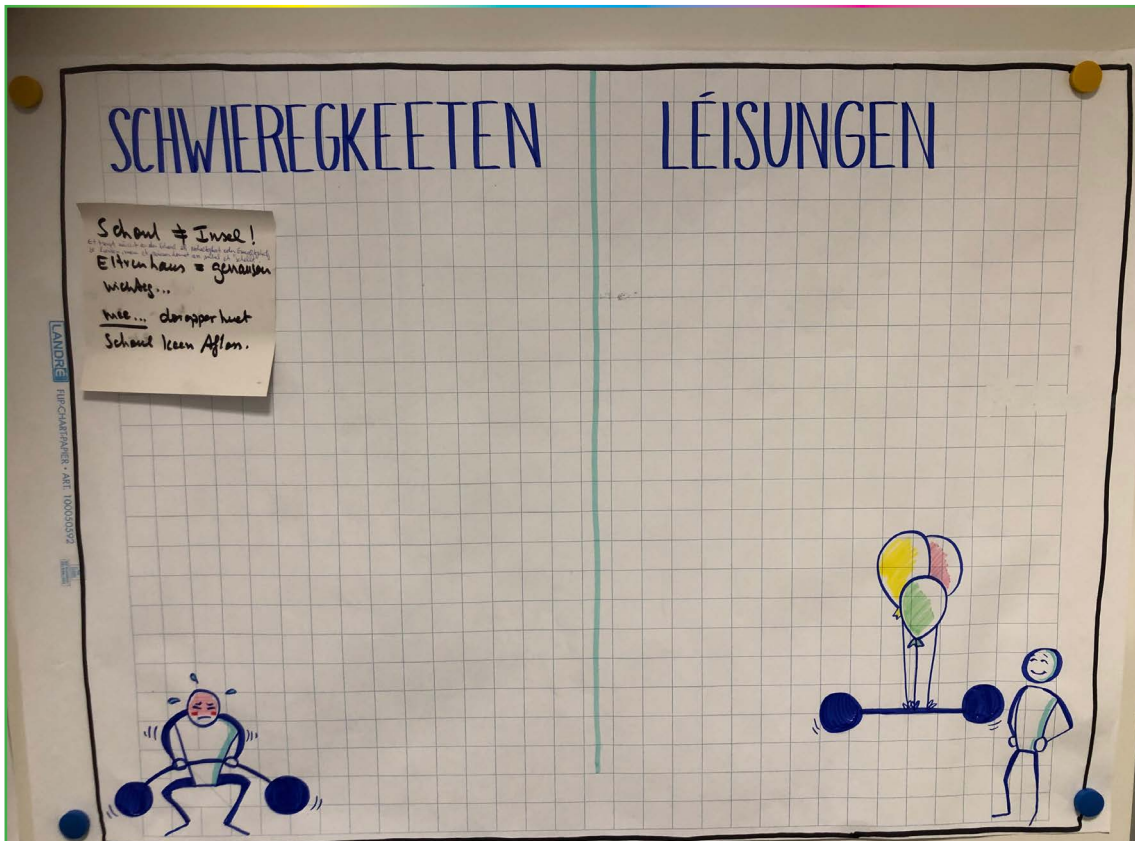 SCHWIEREGKEETEN
LÉISUNGEN
Schoul ≠ Insel!
Elterenhaus = genausou
wichteg...
mee... doropper huet
Schoul keen Afloss.
LANDRÉ
FLIP-CHART-PAPIER • ART. 100050592